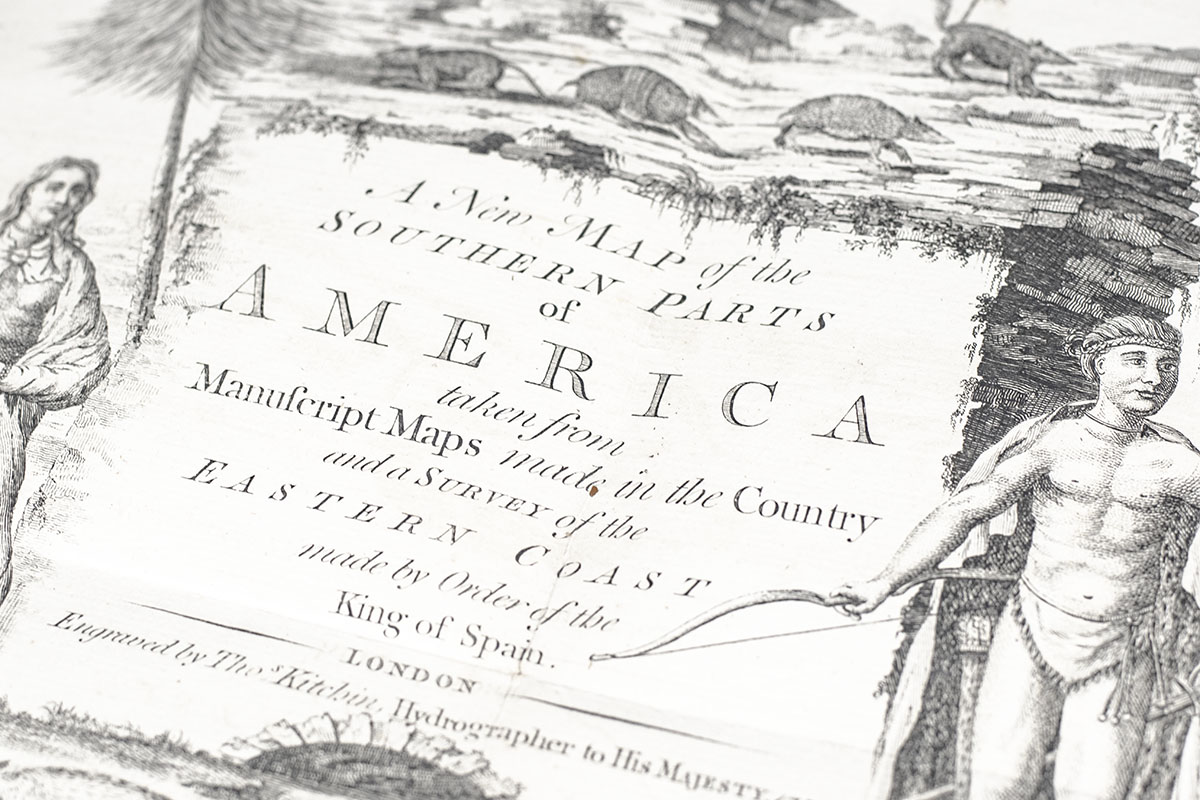 A New MAP of the
SOUTHERN PARTS
of
AMERICA
taken from
Manuſcript Maps made in the Country
and a SURVEY of the
EASTERN COAST
made by Order of the
King of Spain.
LONDON
Engraved by Thoˢ Kitchin, Hydrographer to His MAJESTY